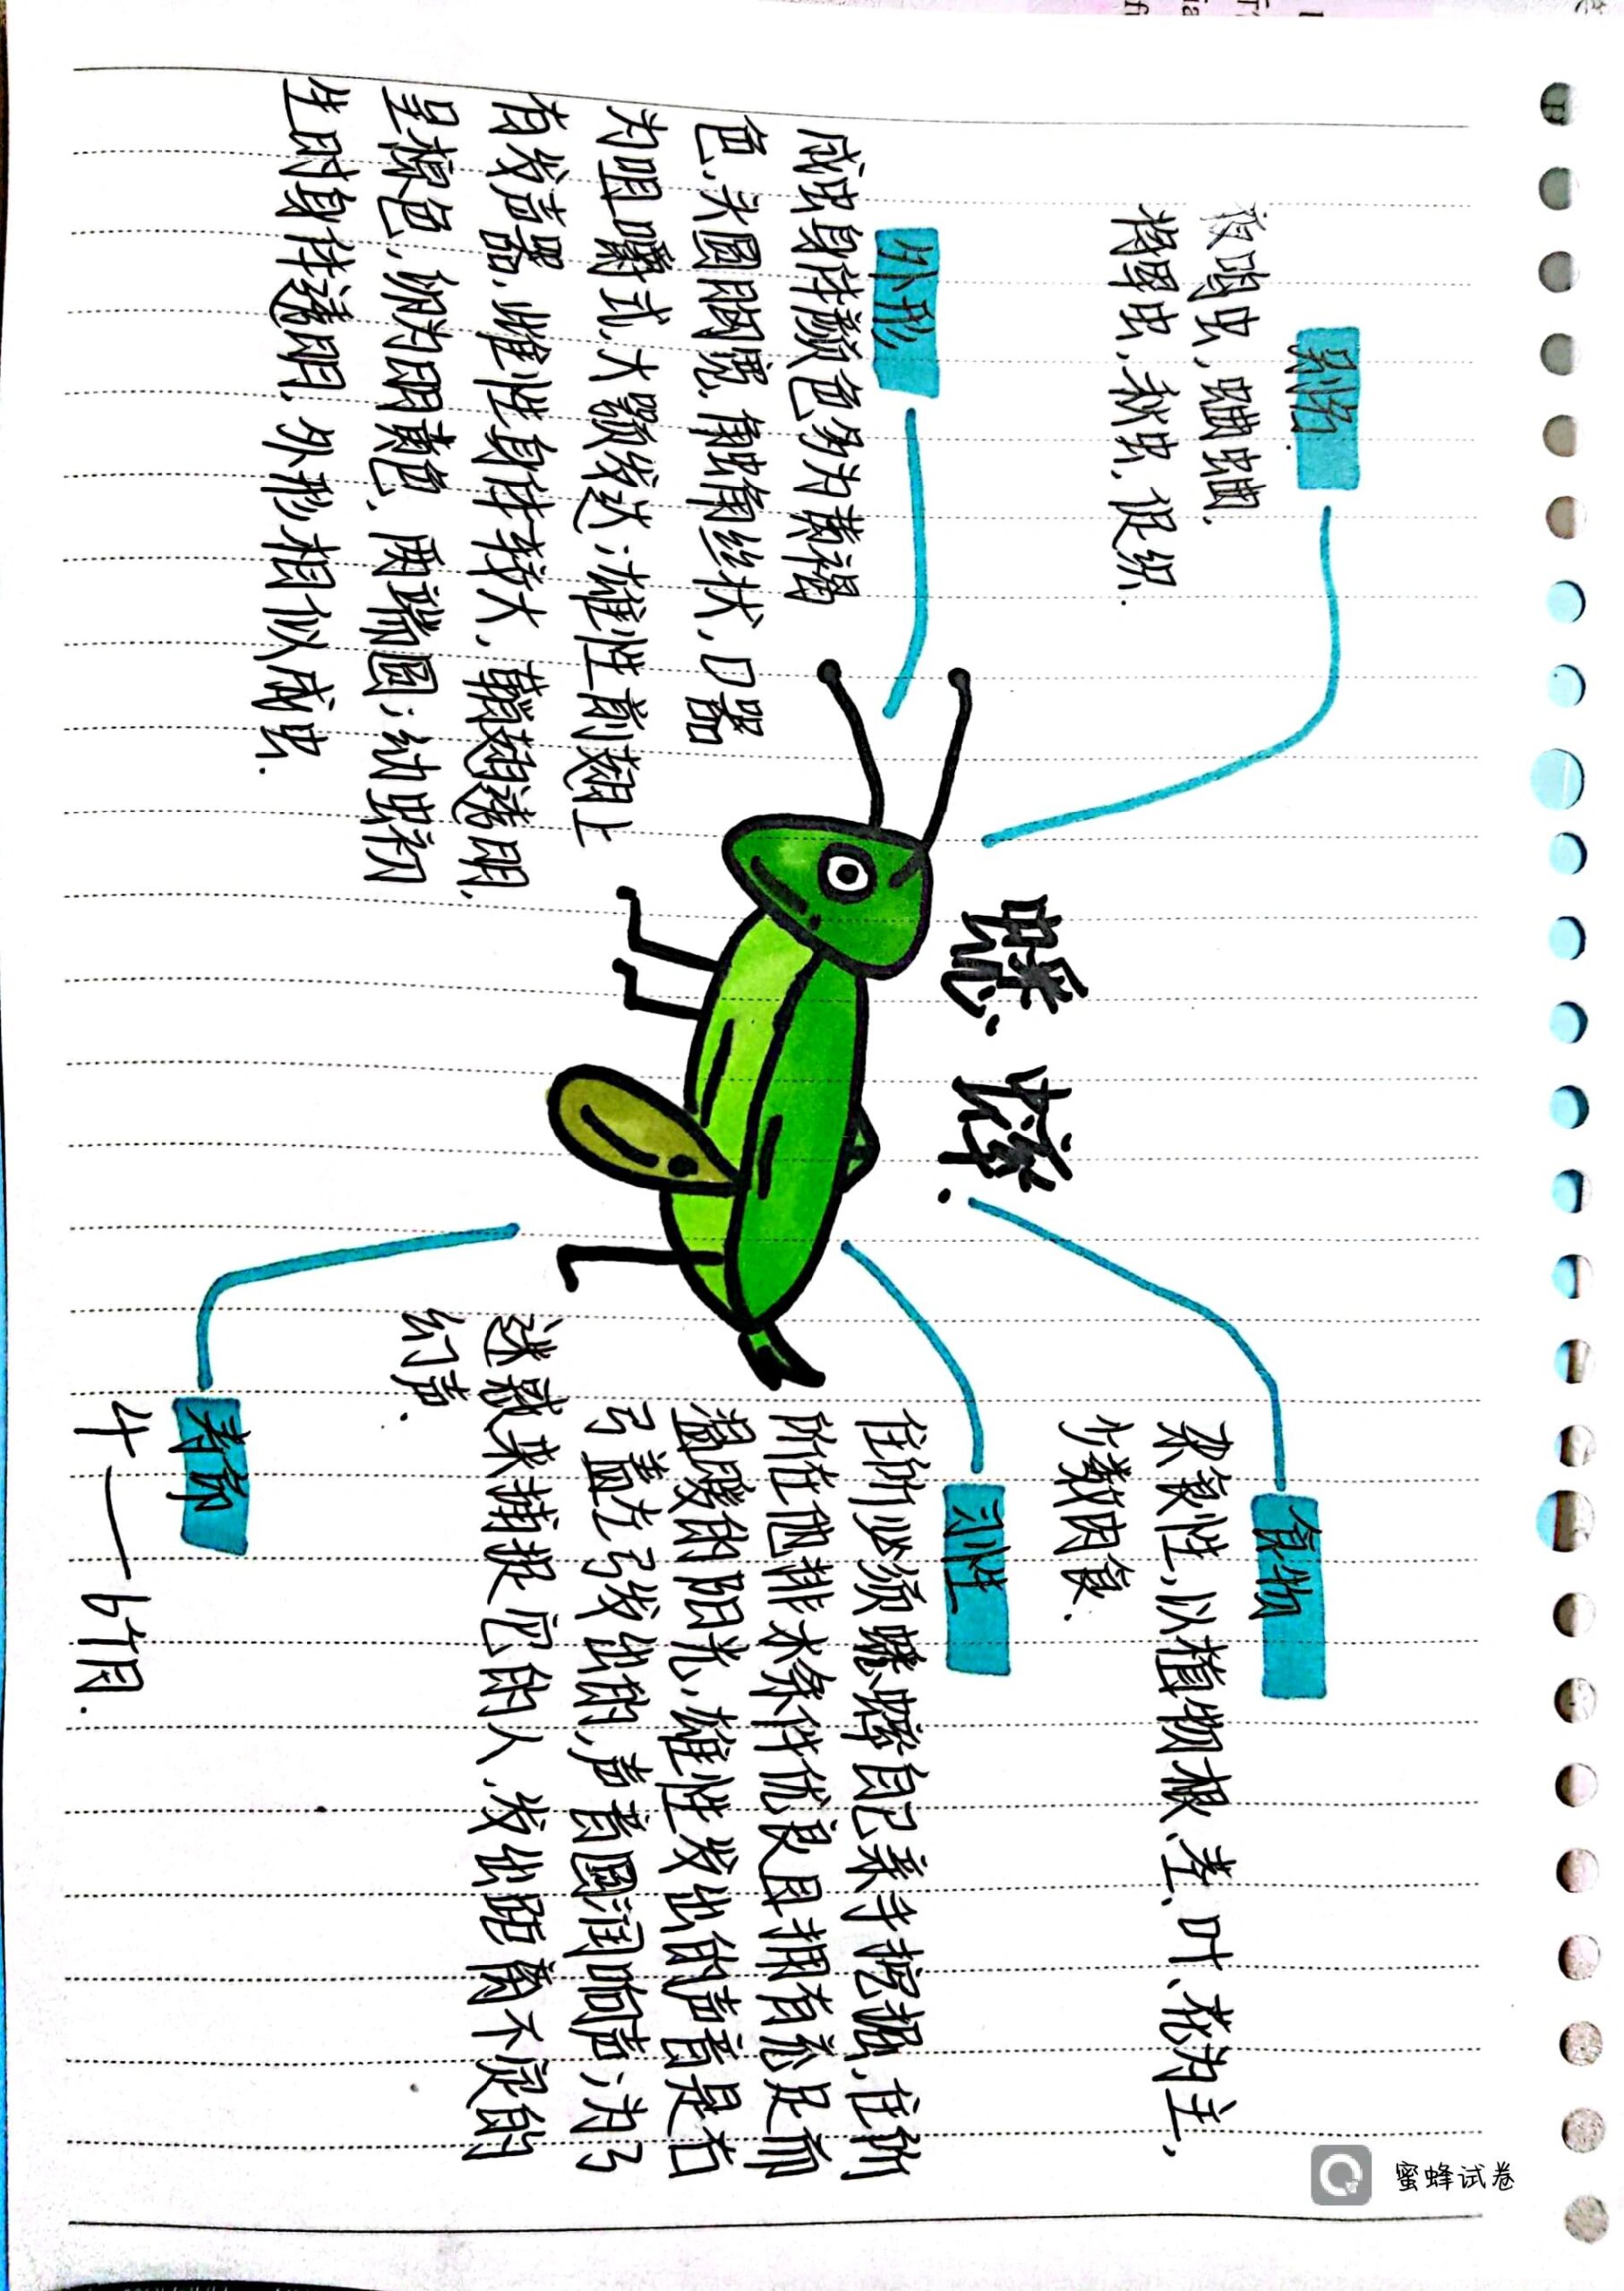 别名
夜鸣虫，蛐蛐。
将军虫，秋虫，促织。
外形
成虫身体颜色多为黄褐
色，头圆胸宽，触角丝状，口器
为咀嚼式，大颚发达；雄性前翅上
有发声器，雌性身体较大，翅透明，
呈棕色，卵为阴黄色，两端圆；幼虫初
生时身体透明，外形相似成虫。
蟋蟀
食物
杂食性，以植物根、茎、叶、花为主，
少数肉食。
习性
住所必须蟋蟀自己亲手挖掘，住所
所在地排水条件优良且拥有充足而
温暖的阳光，雄性发出的声音是右
弓盖左弓发出的，声音圆润响声；为了
迷就来捕捉它的人，发出距离不定的
幻声。
寿命
4——6个月。
蜜蜂试卷